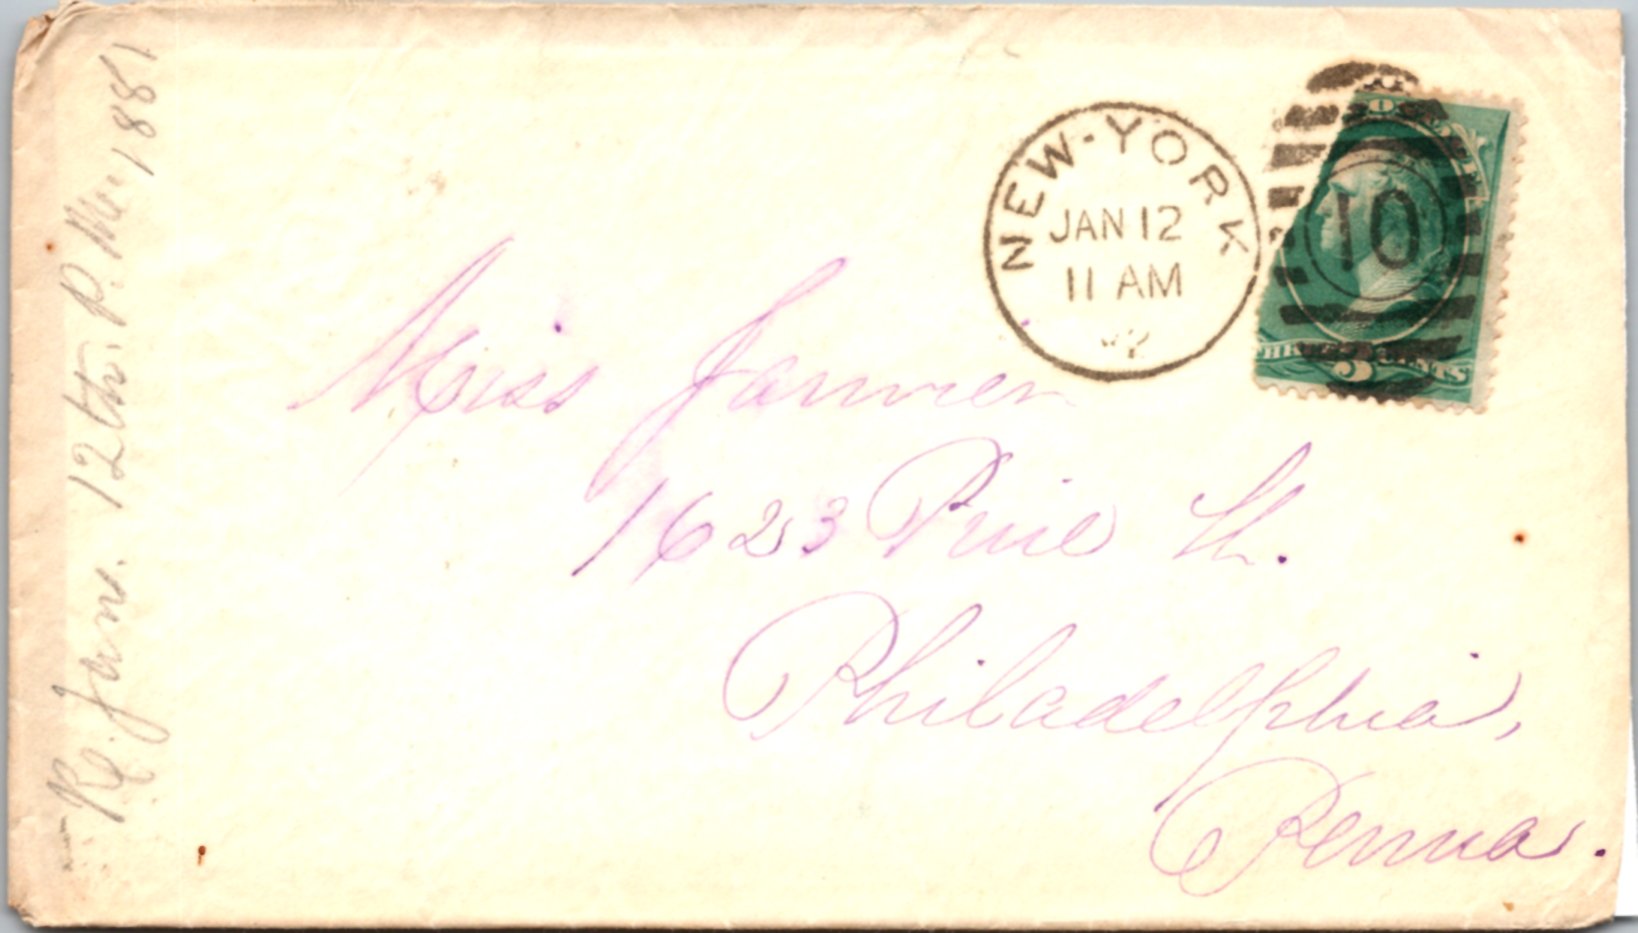 Re. Jan. 12th. P.M. 1881
NEW-YORK
JAN 12
11 AM
10
THREE CENTS
3
Miss Janvier
1623 Pine St.
Philadelphia,
Penna.